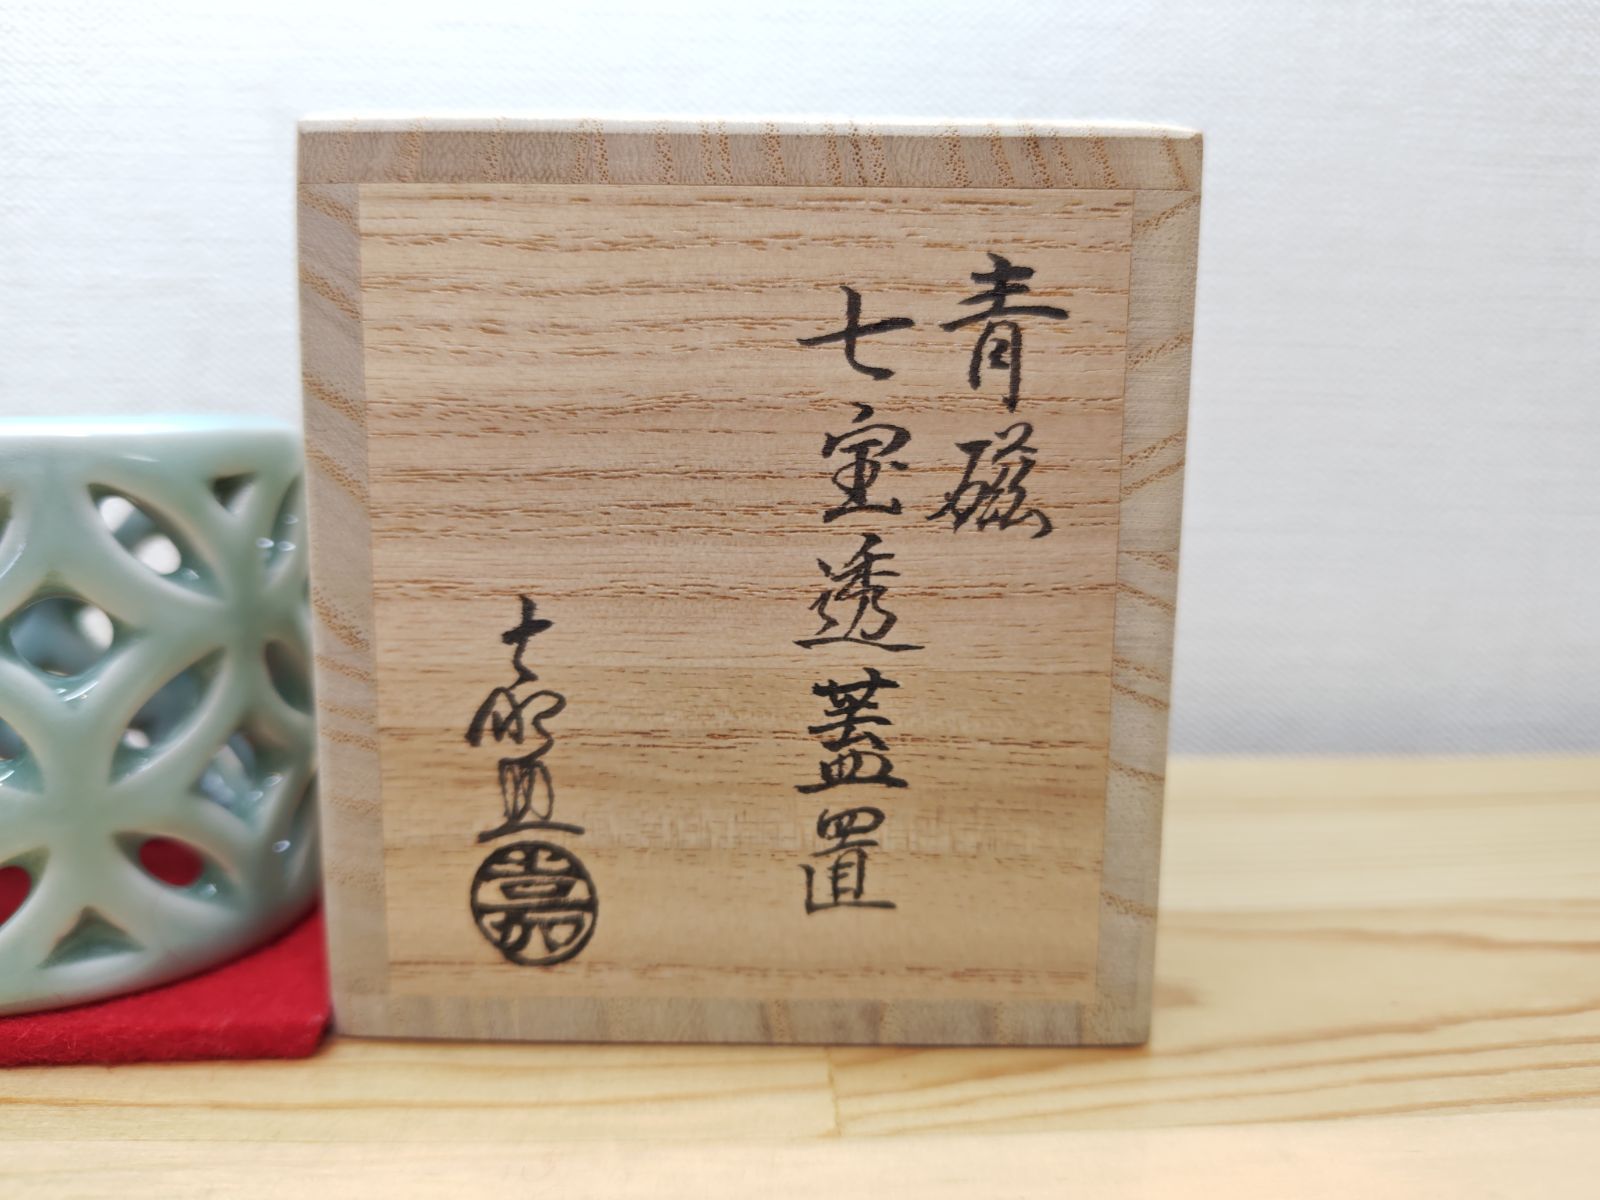 青磁
七宝透蓋置
嘉